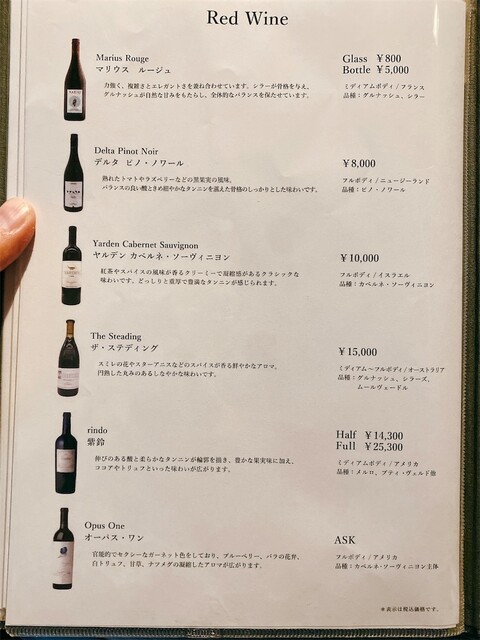 Red Wine
Marius Rouge
マリウス ルージュ
力強く、複雑さとエレガントさを兼ね合わせています。シラーが骨格を与え、
グルナッシュが自然な甘みをもたらし、全体的なバランスを保たせています。
Glass ¥800
Bottle ¥5,000
ミディアムボディ / フランス
品種：グルナッシュ、シラー
Delta Pinot Noir
デルタ ピノ・ノワール
熟れたトマトやラズベリーなどの黒果実の風味。
バランスの良い酸ときめ細やかなタンニンを湛えた骨格のしっかりとした味わいです。
¥8,000
フルボディ / ニュージーランド
品種：ピノ・ノワール
Yarden Cabernet Sauvignon
ヤルデン カベルネ・ソーヴィニヨン
紅茶やスパイスの風味が香るクリーミーで凝縮感があるクラシックな
味わいです。どっしりと重厚で豊満なタンニンが感じられます。
¥10,000
フルボディ / イスラエル
品種：カベルネ・ソーヴィニヨン
The Steading
ザ・ステディング
スミレの花やスターアニスなどのスパイスが香る鮮やかなアロマ。
円熟した丸みのあるしなやかな味わいです。
¥15,000
ミディアム〜フルボディ / オーストラリア
品種：グルナッシュ、シラーズ、
ムールヴェードル
rindo
紫鈴
伸びのある酸と柔らかなタンニンが輪郭を描き、豊かな果実味に加え、
ココアやトリュフといった味わいが広がります。
Half ¥14,300
Full ¥25,300
ミディアムボディ / アメリカ
品種：メルロ、プティ・ヴェルド他
Opus One
オーパス・ワン
官能的でセクシーなガーネット色をしており、ブルーベリー、バラの花弁、
白トリュフ、甘草、ナツメグの凝縮したアロマが広がります。
ASK
フルボディ / アメリカ
品種：カベルネ・ソーヴィニヨン主体
※表示は税込価格です。